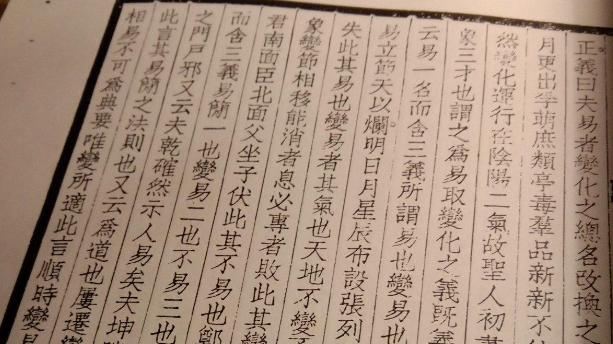 正義曰夫易者變化之總名改換之
月更出孚萌庶類亭毒羣品新新不
然變化運行在陰陽二氣故聖人初畫
象三才也謂之為易取變化之義既義
云易一名而含三義所謂易也變易也
易立節天以爛明日月星辰布設張列
失此其易也變易者其氣也天地不變
象變節相移能消者息必專者敗此其變
君南面臣北面父坐子伏此其不易也鄭
而含三義易簡一也變易二也不易三也
之門戶邪又云夫乾確然示人易矣夫坤
此言其易簡之法則也又云為道也屢遷變
相易不可為典要唯變所適此言順時變易